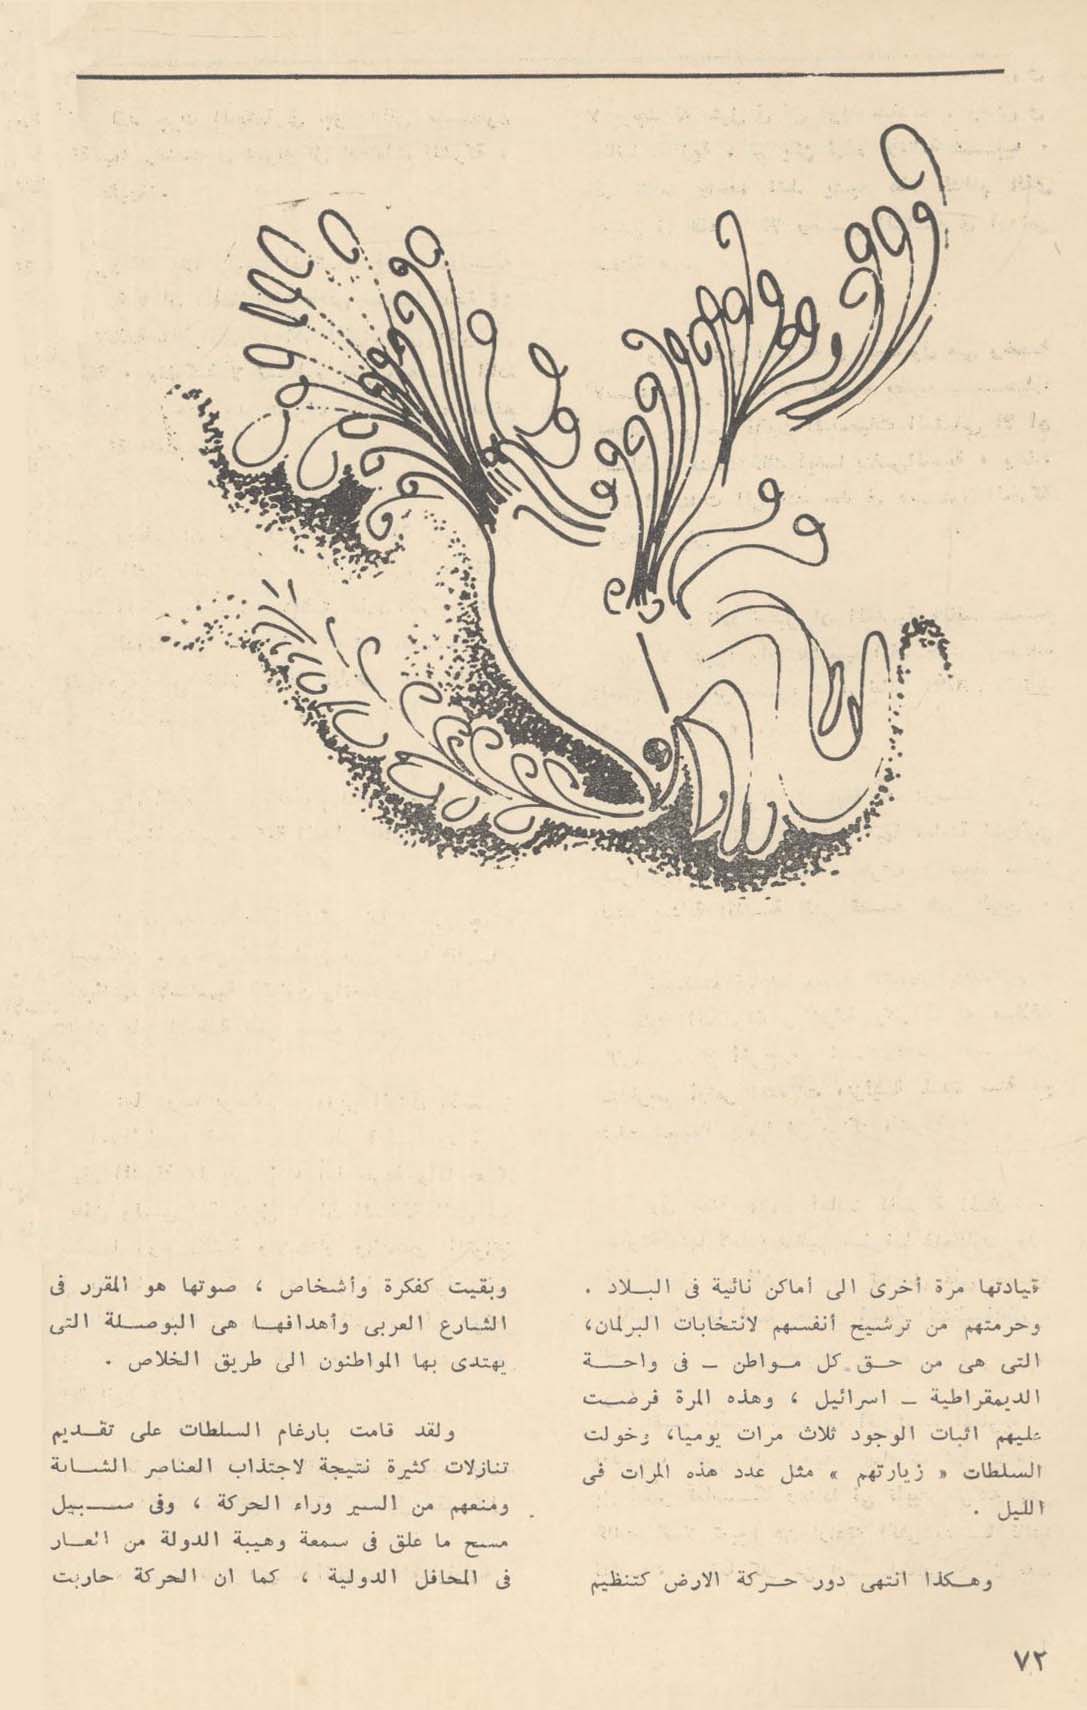 قيادتها مرة أخرى الى أماكن نائية فى البـلاد .
وحرمتهم من ترشيح أنفسهم لانتخابات البرلمان،
التى هى من حـق كل مـواطن ــ فى واحـــة
الديمقراطية ــ اسرائيل ، وهذه المرة فرضـت
عليهم اثبات الوجود ثلاث مرات يوميا، وخولت
السلطات « زيارتهم » مثل عدد هذه المرات فى
الليل .
وهـكذا انتهى دور حـركة الارض كتنظيم
وبقيت كفكرة وأشخاص ، صوتها هو المقرر فى
الشارع العربى وأهدافهـا هى البوصـلة التى
يهتدى بها المواطنون الى طريق الخلاص .
ولقد قامت بارغام السلطات على تقـديم
تنازلات كثيرة نتيجة لاجتذاب العناصر الشـابة
ومنعهم من السير وراء الحركة ، وفى ســبيل
مسح ما علق فى سمعة وهيبة الدولة من العـار
فى المحافل الدولية ، كما ان الحركة حاربت
٧٢